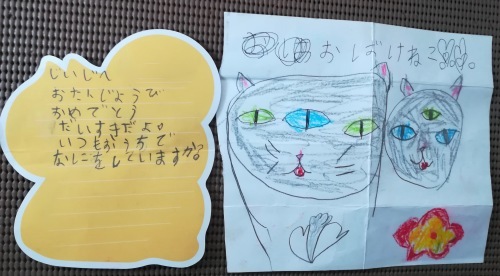 じいじへ
おたんじょうび
おめでとう
だいすきだよ。
いつもおうちで
なにをしていますか?
おばけねこ